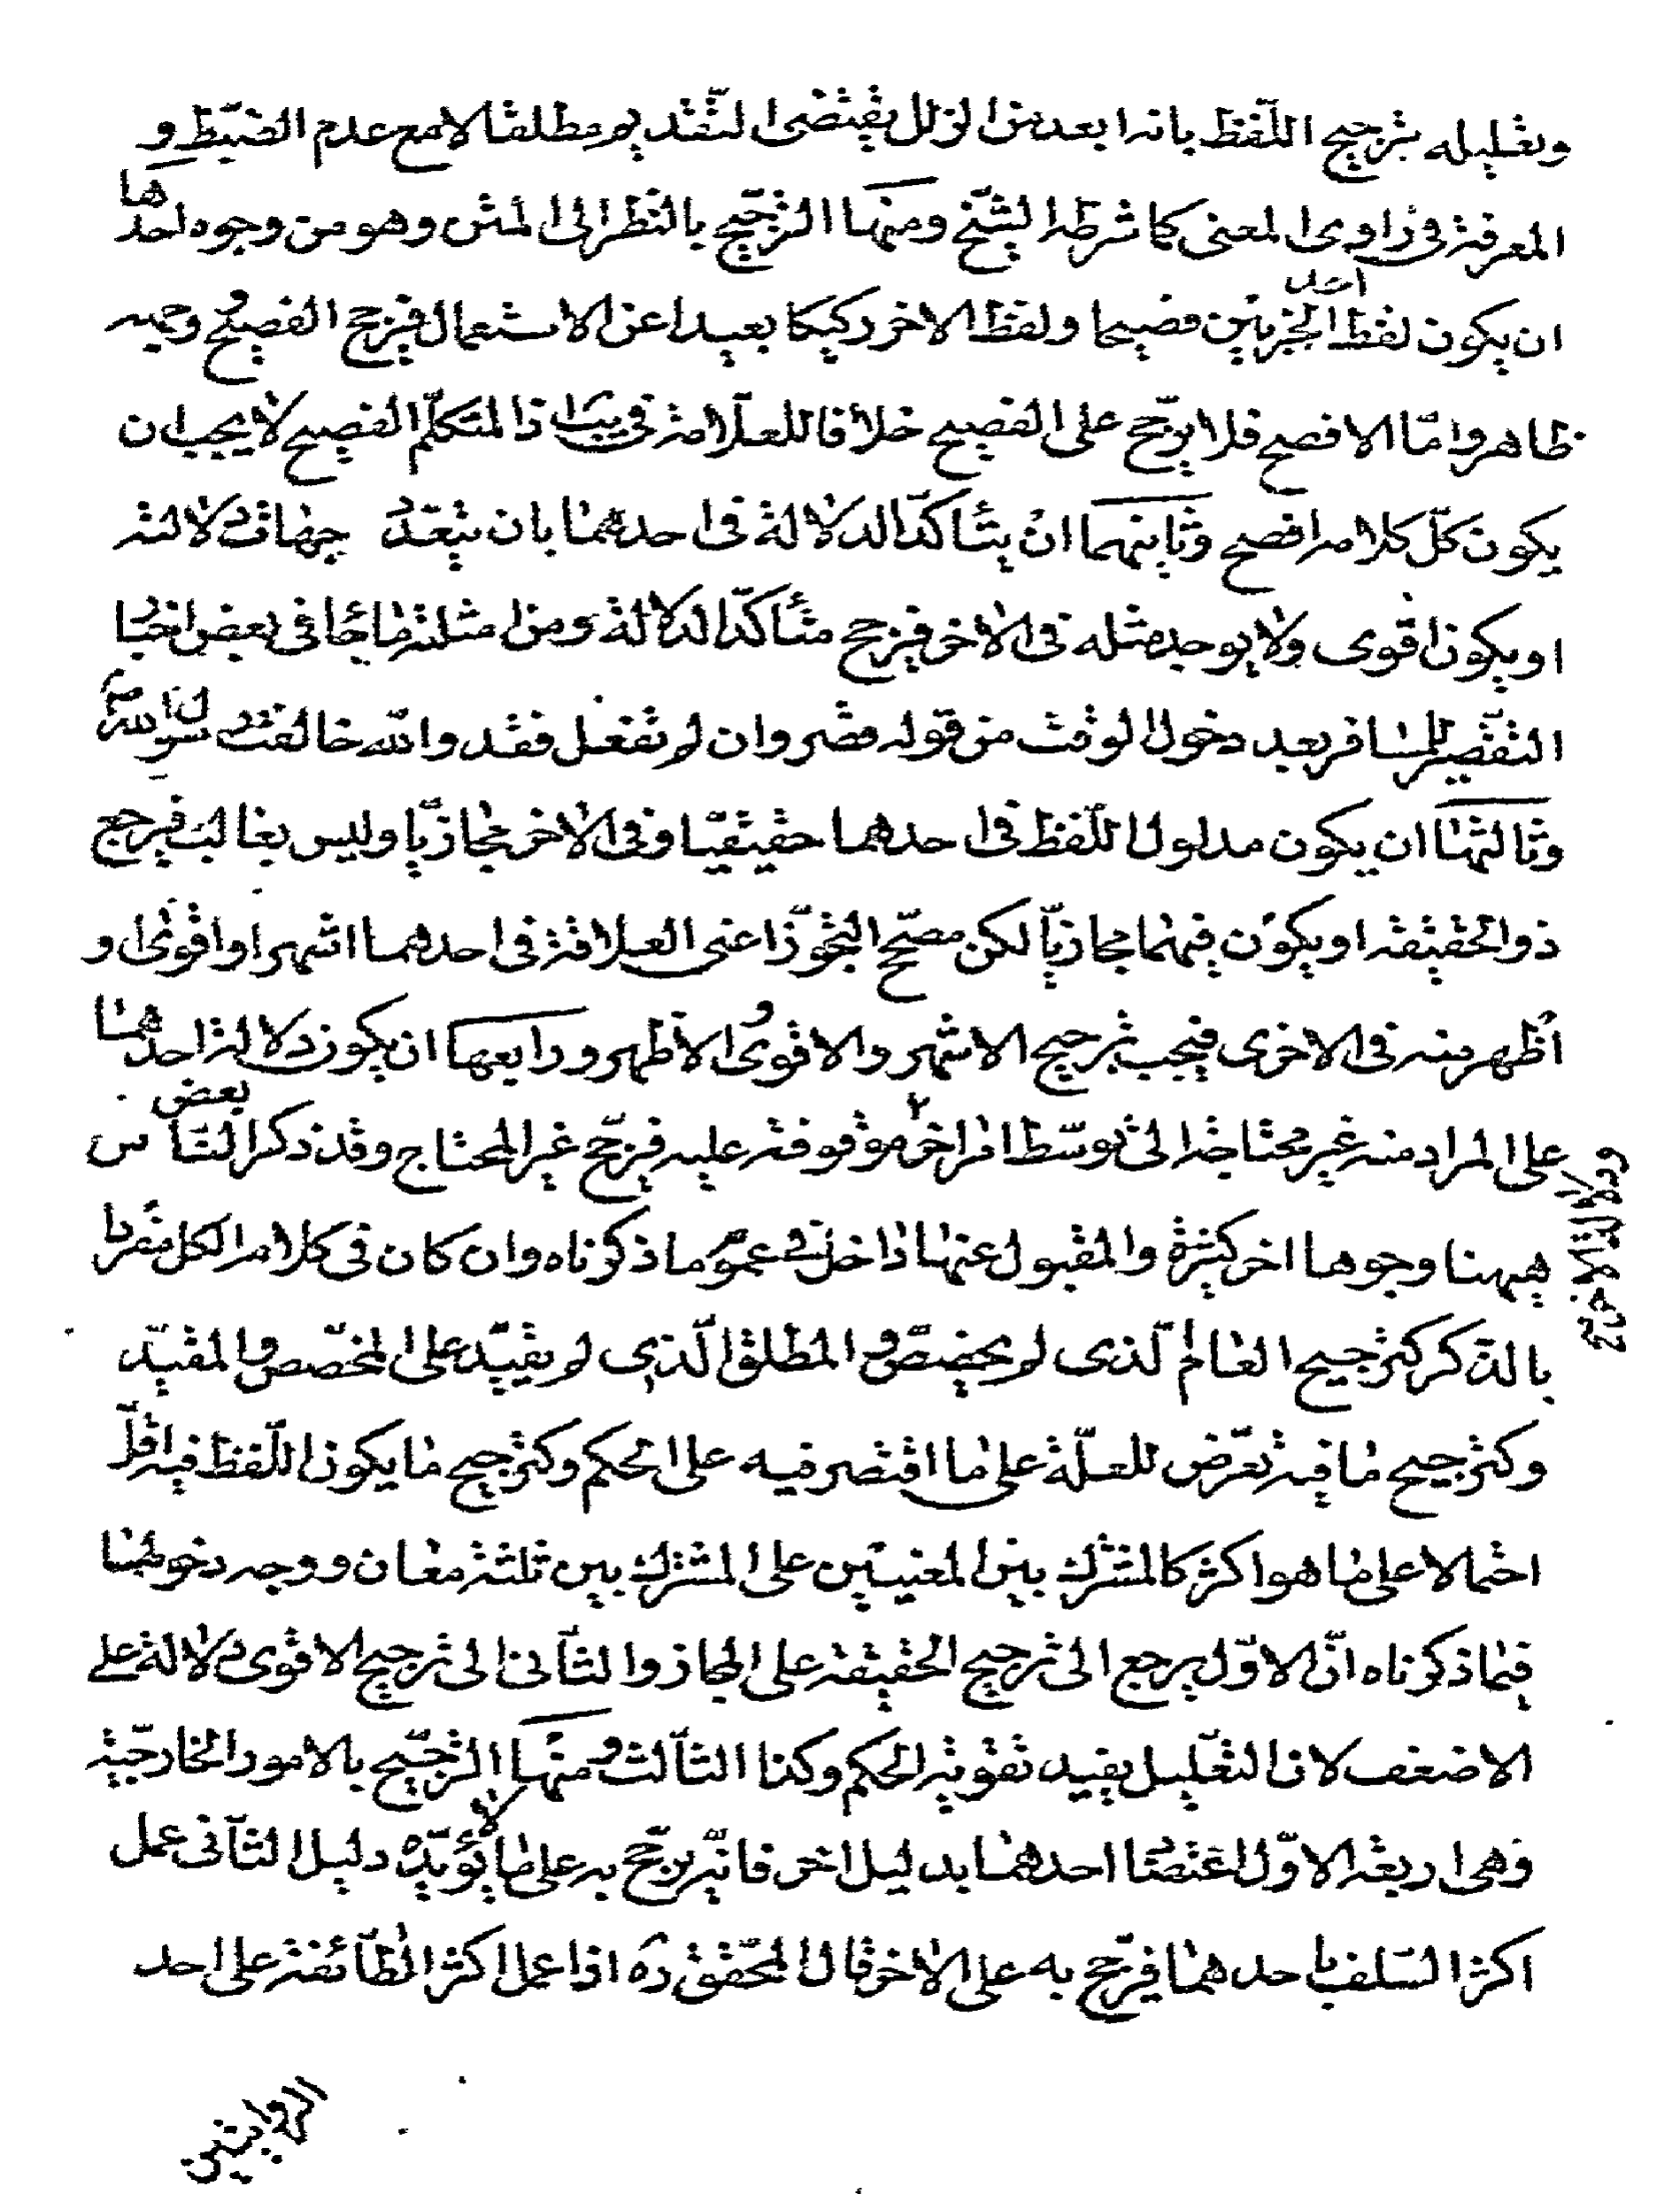 وتعليله بترجيح اللّفظ بانه ابعد من الزلل يقتضى التّقديم مطلقا لا مع عدم الضّبط و
المعرفة فى راوى المعنى كما شرطه الشّيخ ومنها الترجّيح بالنّظر الى المتن وهو من وجوه احدها
ان يكون لفظ احد الخبرين فصيحا ولفظ الاخر ركيكا بعيدا عن الاستعمال فيرجح الفصيح ووجهه
ظاهر وامّا الافصح فلا يرجّح على الفصيح خلافا للعلّامة فى يب اذ المتكلّم الفصيح لا يجب ان
يكون كلّ كلامه افصح وثانيهما ان يتأكّد الدلالة فى احدهما بان يتعدّد جهات دلالته
او يكون اقوى ولا يوجد مثله فى الاخر فيرجح متأكّد الدلالة ومن امثلته ما جاء فى بعض اخبار
التقصير للمسافر بعد دخول الوقت من قوله قصر وان لم تفعل فقد والله خالفت رسول الله ص
وثالثها ان يكون مدلول اللّفظ فى احدهما حقيقيّا وفى الاخر مجازيّا وليس بغالب فيرجح
ذو الحقيقة او يكون فيهما مجازيّا لكن مصحّح التجوّز اعنى العلاقة فى احدهما اشهر او اقوى او
أظهر منه فى الاخرى فيجب ترجيح الاشهر والاقوى والاظهر ورابعها ان يكون دلالة احدهما
على المراد منه غير محتاجة الى توسّط امر اخر ودلالة الاخر موقوفة عليه فيرجّح غير المحتاج وقد ذكر بعض النّاس
هيهنا وجوها اخر كثيرة والمقبول عنها داخل فى عموم ما ذكرناه وان كان فى كلامهم الكل مفردا
بالذّكر كترجيح العام الّذى لم يخصّص والمطلق الّذى لم يقيّد على المخصّص والمقيّد
وكترجيح ما فيه تعرّض للعلّة على ما اقتصر فيه على الحكم وكترجيح ما يكون اللّفظ فيه اقلّ
احتمالا على ما هو اكثر كالمشترك بين المعنيين على المشترك بين ثلثة معان ووجه دخولها
فيما ذكرناه انّ الاوّل يرجع الى ترجيح الحقيقة على المجاز والثّانى الى ترجيح الاقوى دلالة على
الاضعف لان التّعليل يفيد تقوية الحكم وكذا الثّالث ومنها الترجّيح بالامور الخارجيّة
وهى اربعة الاوّل اعتضاد احدهما بدليل اخر فانّه يرجّح به على ما لا يؤيّده دليل الثّانى عمل
اكثر السّلف باحدهما فيرجّح به على الاخر قال المحقّق ره اذا عمل اكثر الطّائفة على احد
الروايتين